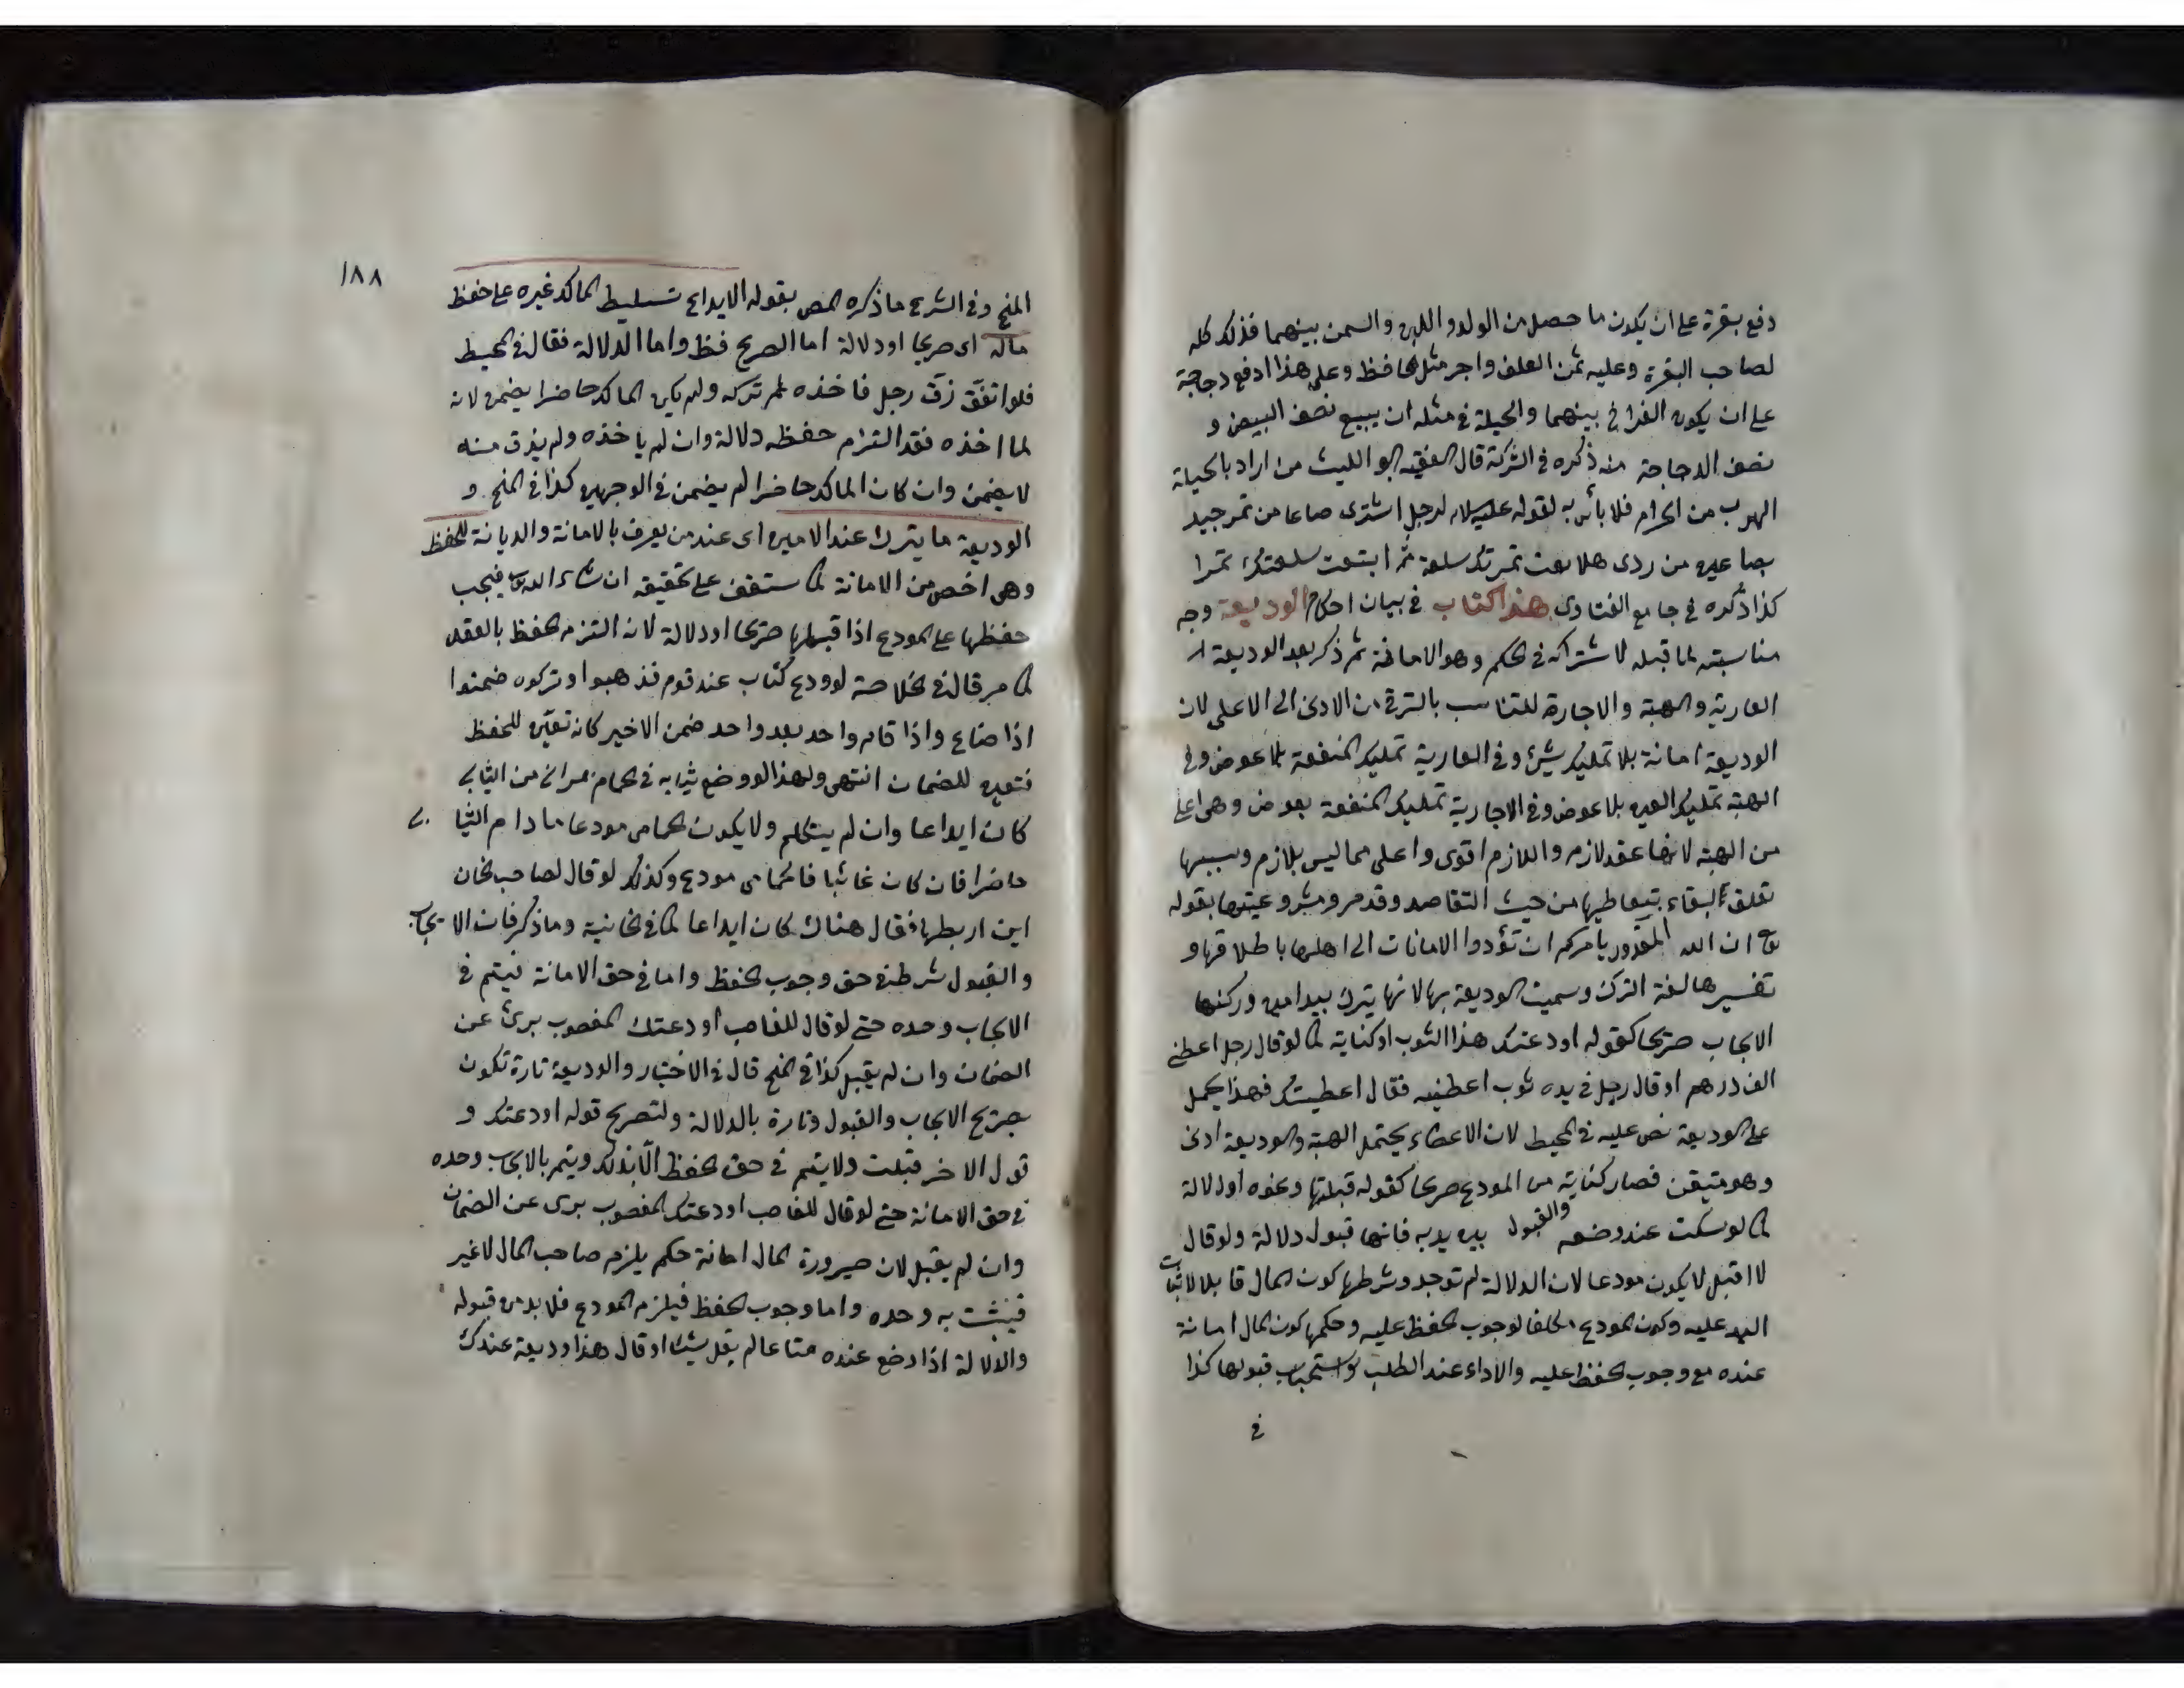 دفع بقرة على ان يكون ما حصل من الولد و اللبن والسمن بينهما فذلك كله
لصاحب البقرة وعليه ثمن العلف واجر مثل الحافظ وعلى هذا ادفع دجاجة
على ان يكون الفراخ بينهما والحيلة فى مثله ان يبيع نصف البيض و
نصف الدجاجة منه ذكره فى الشركة قال الفقيه ابو الليث من اراد بالحيلة
الهرب من الحرام فلا بأس به لقوله عليه السلام لرجل اشترى صاعا من تمر جيد
بصاعين من ردى هلا بعت تمرتك سلعة ثم ابتعت سلعتك تمرا
كذا ذكره فى جامع الفتاوى هذا كتاب فى بيان احكام الوديعة وجه
مناسبته لما قبله لاشتراكه فى الحكم وهو الامانة ثم ذكر بعد الوديعة
العارية والهبة والاجارة للتناسب بالترقى من الادنى الى الاعلى لان
الوديعة امانة بلا تمليك شئ وفى العارية تمليك المنفعة بلا عوض وفى
الهبة تمليك العين بلا عوض وفى الاجارة تمليك المنفعة بعوض وهى اعلى
من الهبة لانها عقد لازم واللازم اقوى واعلى مما ليس بلازم وسببها
تعلق البقاء بتعاطيها من حيث التقاصد وقد مر ومشروعيتها بقوله
تعالى ان الله يأمركم ان تؤدوا الامانات الى اهلها باطلاقها و
تفسيرها لغة الترك وسميت الوديعة بها لانها يترك بيد امين وركنها
الايجاب صريحا كقوله اودعتك هذا الثوب او كناية كما لو قال رجل اعطنى
الف درهم او قال رجل فى يده ثوب اعطنيه فقال اعطيتك فهذا يحمل
على الوديعة نص عليه فى المحيط لان الاعطاء يحتمل الهبة والوديعة ادنى
وهو متيقن فصار كناية من المودع صريحا كقوله قبلتها ونحوه او دلالة
كما لو سكت عند وضعه والقبول بين يديه فانها قبول دلالة ولو قال
لا اقبل لا يكون مودعا لان الدلالة لم توجد وشرطها كون المال قابلا لاثبات
اليد عليه وكون المودع مكلفا لوجوب الحفظ عليه وحكمها كون المال امانة
عنده مع وجوب الحفظ عليه والاداء عند الطلب واستحباب قبولها كذا
فى
١٨٨
المنح وفى الشرع ما ذكره المص بقوله الايداع تسليط المالك غيره على حفظ
ماله اى صريحا او دلالة اما الصريح فظ واما الدلالة فقال فى المحيط
فلو انفتق زق رجل فاخذه ثم تركه ولم يكن المالك حاضرا يضمن لانه
لما اخذه فقد التزام حفظه دلالة وان لم ياخذه ولم يدن منه
لا يضمن وان كان المالك حاضرا لم يضمن فى الوجهين كذا فى المنح و
الوديعة ما يترك عند الامين اى عند من يعرف بالامانة والديانة للحفظ
وهى اخص من الامانة كما ستقف على تحقيقه ان شاء الله تعالى فيجب
حفظها على المودع اذا قبلها صريحا او دلالة لانه التزم الحفظ بالعقد
كما مر قال فى الخلاصة لو ودع كتاب عند قوم فذهبوا وتركوه ضمنوا
اذا ضاع واذا قام واحد بعد واحد ضمن الاخير كانه تعين للحفظ
فتعين للضمان انتهى ولهذا لو وضع ثيابه فى الحمام بمرأى من الثيابى
كان ايداعا وان لم يتكلم ولا يكون الحمامى مودعا ما دام الثيابى
حاضرا فان كان غائبا فالحمامى مودع وكذلك لو قال لصاحب الخان
اين اربطها فقال هناك كان ايداعا كما فى الخانية وما ذكر فان الايجاب
والقبول شرط فى حق وجوب الحفظ واما فى حق الامانة فيتم فى
الايجاب وحده حتى لو قال للغاصب اودعتك المغصوب برئ عن
الضمان وان لم يقبل كذا فى المنح قال فى الاختيار والوديعة تارة تكون
بصريح الايجاب والقبول وتارة بالدلالة ولتصريح قوله اودعتك و
قول الاخر قبلت ولا يتم فى حق الحفظ الا بذلك ويتم بالايجاب وحده
فى حق الامانة حتى لو قال للغاصب اودعتك المغصوب برى عن الضمان
وان لم يقبل لان صيرورة المال امانة حكم يلزم صاحب المال لا غير
فيثبت به وحده واما وجوب الحفظ فيلزم المودع فلا بد من قبوله
والدلالة اذا وضع عنده متاعا لم يقل شيئا او قال هذا وديعة عندك